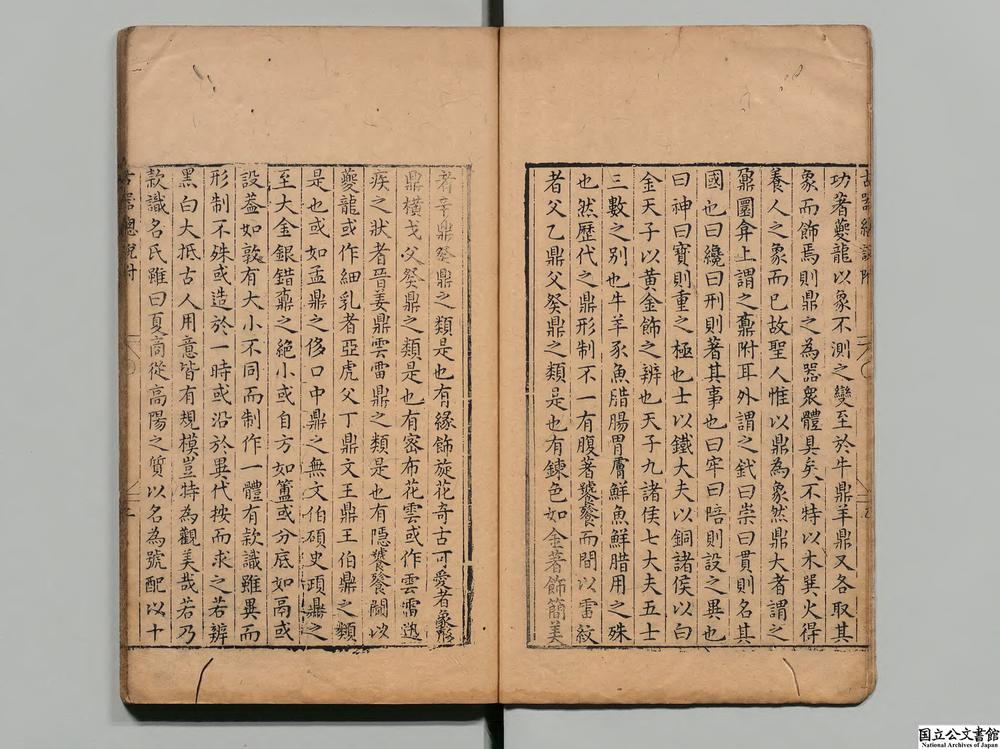 功著夔龍以象不測之變至於牛鼎羊鼎又各取其
象而飾焉則鼎之為器衆體具矣不特以木巽火得
養人之象而已故聖人惟以鼎為象然鼎大者謂之
鼐圜弇上謂之鼒附耳外謂之釴曰崇曰貫則名其
國也曰纔曰刑則著其事也曰牢曰陪則設之異也
曰神曰寶則重之極也士以鐵大夫以銅諸侯以白
金天子以黃金飾之辨也天子九諸侯七大夫五士
三數之別也牛羊豕魚腊腸胃膚鮮魚鮮腊用之殊
也然歷代之鼎形制不一有腹著饕餮而間以雷紋
者父乙鼎父癸鼎之類是也有鍊色如金著飾簡美
者辛鼎癸鼎之類是也有緣飾旋花奇古可愛者象形
鼎橫戈父癸鼎之類是也有密布花雲或作雲雷迅
疾之狀者晉姜鼎雲雷鼎之類是也有隱饕餮間以
夔龍或作細乳者亞虎父丁鼎文王鼎王伯鼎之類
是也或如孟鼎之侈口中鼎之無文伯碩史頙鼎之
至大金銀錯鼒之絕小或自方如簠或分底如鬲或
設葢如敦有大小不同而制作一體有款識雖異而
形制不殊或造於一時或沿於異代按而求之若辨
黑白大抵古人用意皆有規模豈特為觀美哉若乃
款識名氏雖曰夏商從高陽之質以名為號配以十
古器總說附
国立公文書館
National Archives of Japan